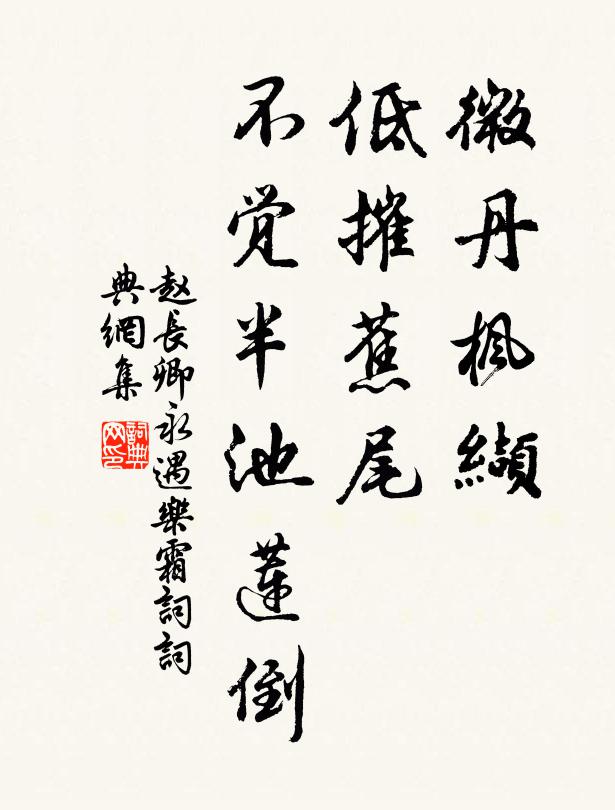 微丹楓纈
低摧蕉尾
不觉半池蓮倒
赵長卿永遇樂霜詞詞
典網集
詞典
网印